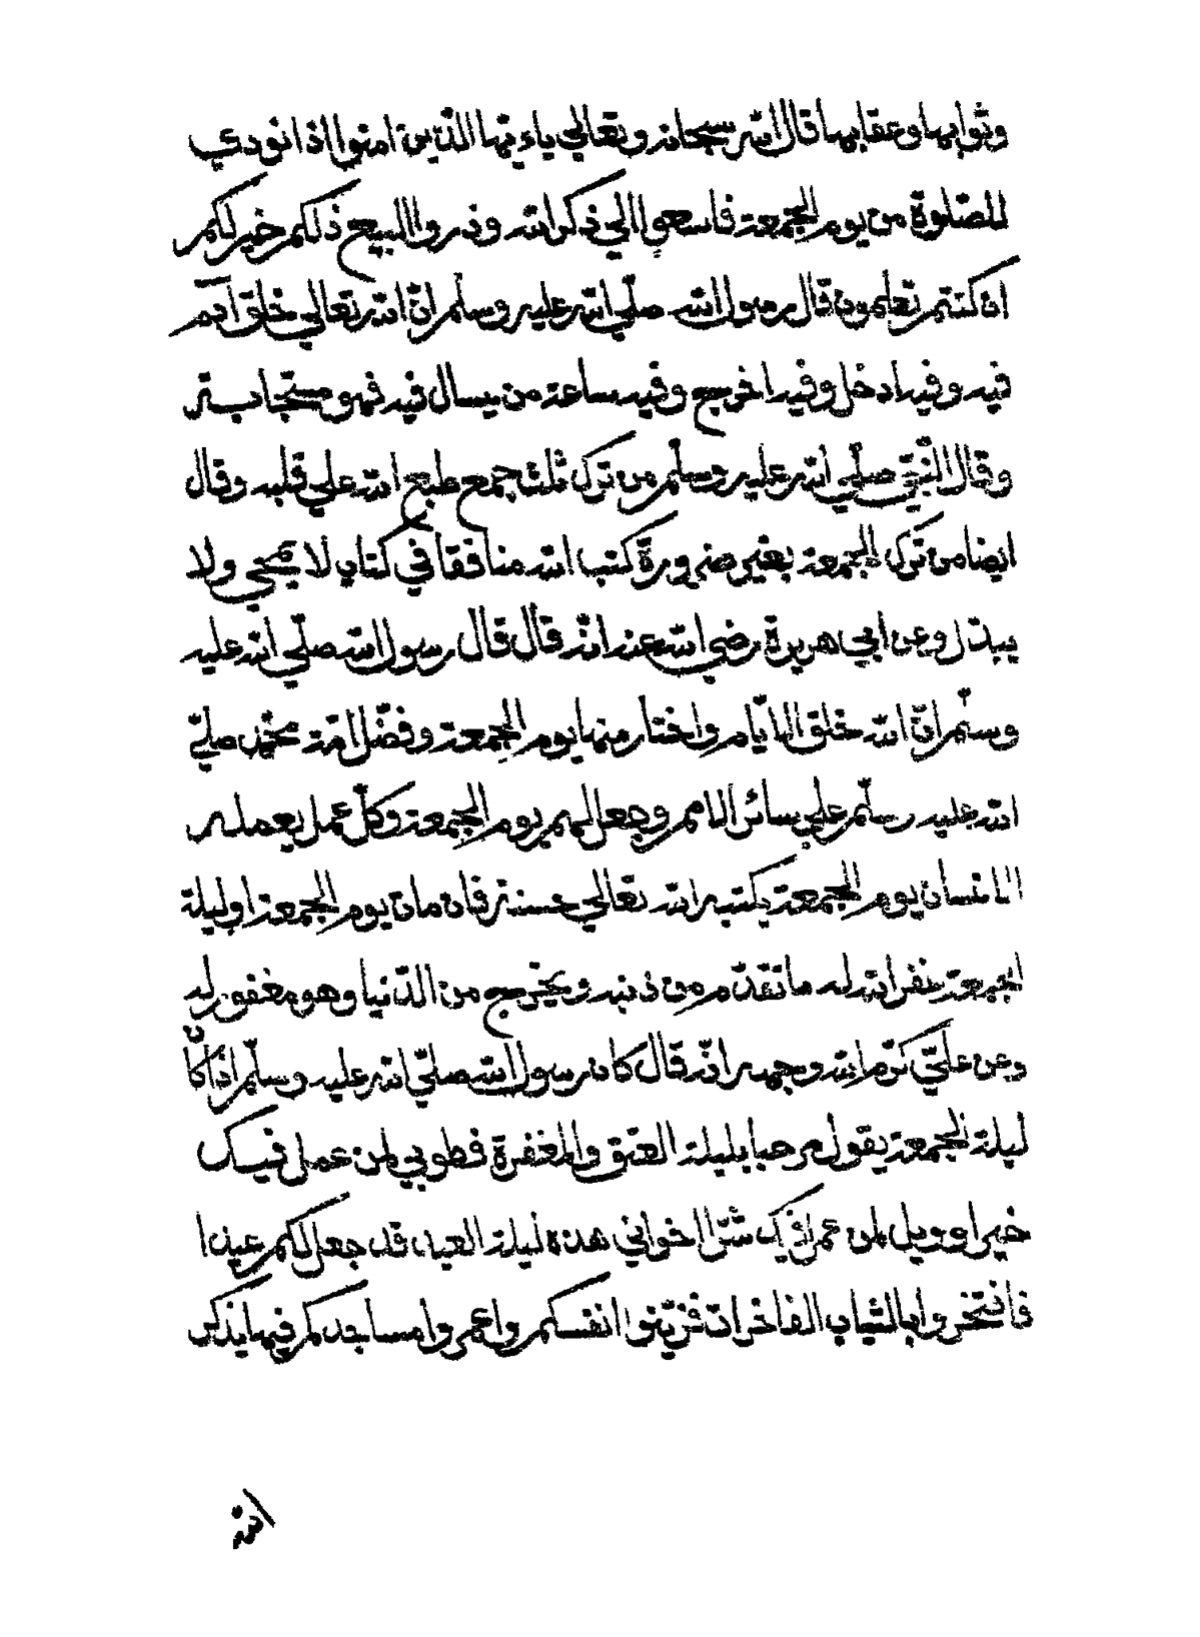 وثوابها وعقابها قال الله سبحانه وتعالي ياءيّها الّذين امنوا اذا نودي
للصّلوة من يوم الجمعة فاسعوا الي ذكر الله وذروا البيع ذلكم خير لكم
ان كنتم تعلمون قال رسول الله صلّي الله عليه وسلّم انّ الله تعالي خلق آدم
فيه وفيه ادخل وفيه اخرج وفيه ساعة من يسال فيه فهو مستجاب له
وقال النّبيّ صلّي الله عليه وسلّم من ترك ثلث جمع طبع الله علي قلبه وقال
ايضا من ترك الجمعة بغير ضرورة كتب الله منافقا في كتاب لا يمحي ولا
يبدل وعن ابي هريرة رضي الله عنه انّه قال قال رسول الله صلّي الله عليه
وسلّم انّ الله خلق الايّام واختار منها يوم الجمعة وفضّل امّة محمّد صلّي
الله عليه وسلّم علي سائر الامم وجعل لهم يوم الجمعة وكلّ عمل يعمله
الانسان يوم الجمعة يكتبه الله تعالي حسنة فان مات يوم الجمعة او ليلة
الجمعة غفر الله له ما تقدّم من ذنبه ويخرج من الدّنيا وهو مغفور له
وعن عليّ كرّم الله وجهه انّه قال كان رسول الله صلّي الله عليه وسلّم اذا كان
ليلة الجمعة يقول مرحبا بليلة العتق والمغفرة فطوبي لمن عمل فيك
خيرا وويل لمن عمل فيك شرّا اخواني هذه ليلة العيد قد جعل لكم عيدا
فافتخروا بالثياب الفاخرات فزيّنوا انفسكم واعمروا مساجدكم فيها يذكر
الله